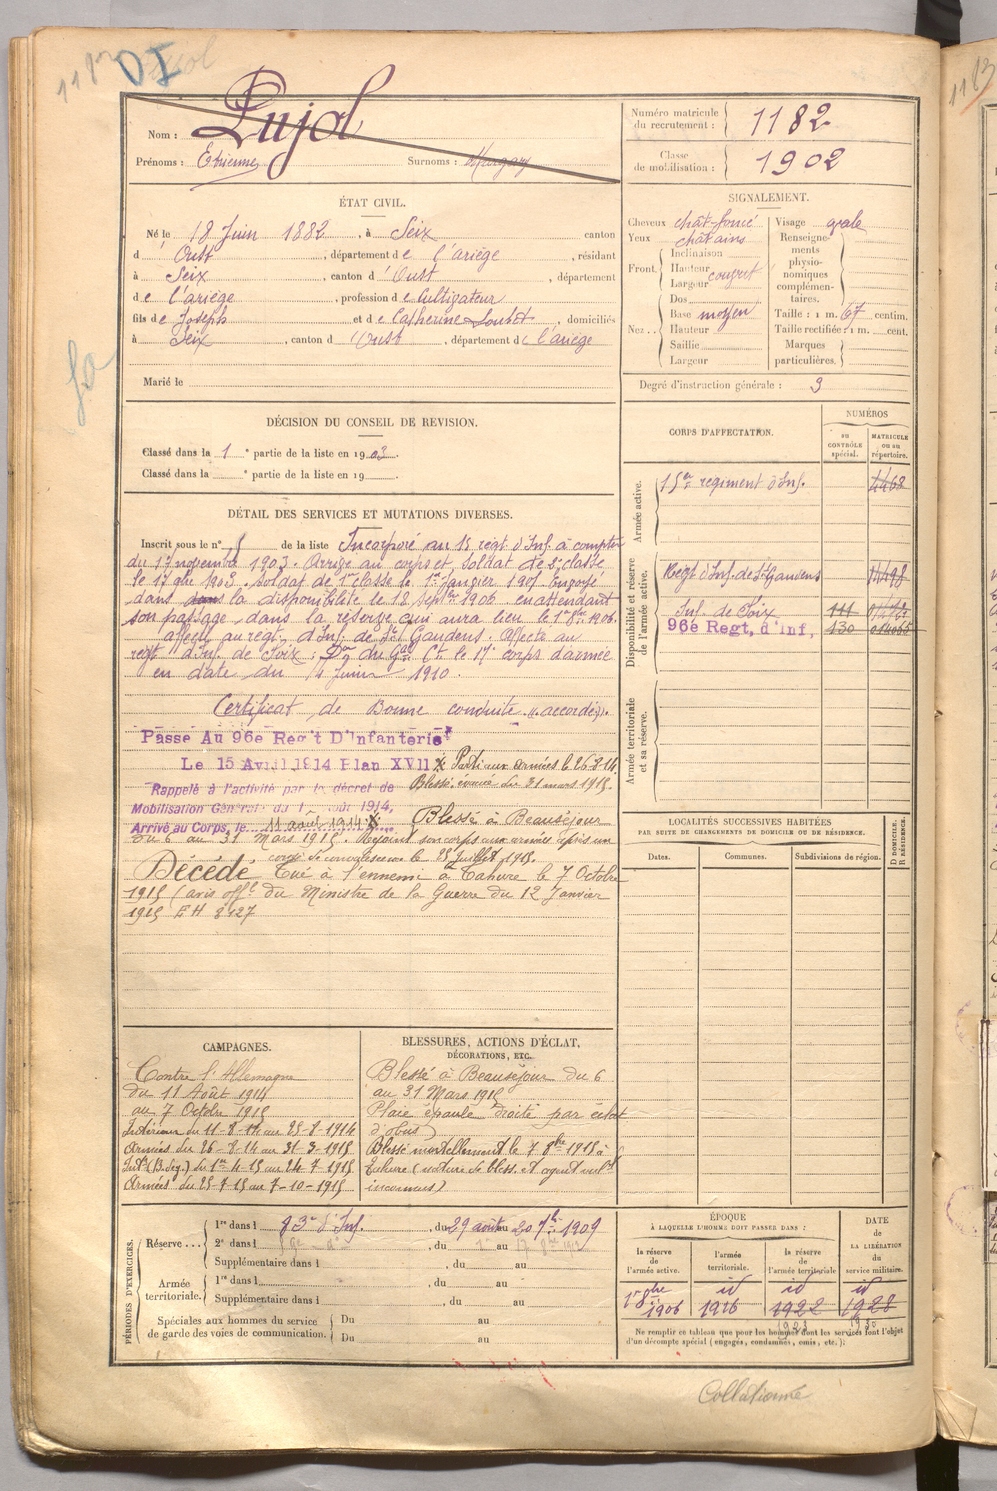 DI
Nom : Pujol
Prénoms : Etienne Surnoms :
Numéro matricule du recrutement : 1182
Classe de mobilisation : 1902
ÉTAT CIVIL.
Né le 18 Juin 1882, à Seix canton
d'Oust, département de l'ariège, résidant
à Seix, canton d'Oust, département
de l'ariège, profession de Cultivateur
fils de Joseph et de Catherine Soubet, domiciliés
à Seix, canton d'Oust, département de l'ariège
Marié le
SIGNALEMENT.
Cheveux chât-foncé
Yeux chatains
Front. Inclinaison
Hauteur
Largeur
Nez.. Dos
Base moyen
Hauteur
Saillie
Largeur
Visage ovale
Renseignements physionomiques complémentaires.
Taille : 1 m. 67 centim.
Taille rectifiée : 1 m. cent.
Marques particulières.
Degré d'instruction générale : 3
DÉCISION DU CONSEIL DE REVISION.
Classé dans la 1e partie de la liste en 1903.
Classé dans la e partie de la liste en 19
CORPS D'AFFECTATION.
NUMÉROS
au CONTRÔLE spécial.
MATRICULE ou au répertoire.
Armée active.
15e regiment d'Inf. 4468
Disponibilité et réserve de l'armée active.
Regt d'Inf. de St Gaudens
Inf. de Foix 111
96e Regt, d'Inf, 130
Armée territoriale et sa réserve.
DÉTAIL DES SERVICES ET MUTATIONS DIVERSES.
Inscrit sous le n° 5 de la liste Incorporé au 15 regt. d'Inf. à compter
du 17 novembre 1903. Arrivé au corps et soldat de 2e classe
le 17 dit 1903. Soldat de 1re classe le 1er Janvier 1905 Envoyé
dans la disponibilité le 18 Septbre 1906 en attendant
son passage dans la réserve qui aura lieu le 1er 8bre 1906.
affecté au regt. d'Inf. de St. Gaudens. Affecté au
regt d'Inf. de Foix : Don du Gal Ct. le 17e corps d'armée
en date du 4 Juin 1910.
Certificat de Bonne conduite "accordé".
Passé Au 96e Reg't D'Infanterie
Le 15 Avril 1914 Plan XVII x Parti aux armées le 26-8-14
Blessé, évacué du 31 mars 1915.
Rappelé à l'activité par le décret de
Mobilisation Générale du 1 août 1914,
Arrivé au Corps, le 11 août 1914 x Blessé à Beauséjour
du 6 au 31 Mars 1915. Rejoint son corps aux armées après un
congé de convalescence le 25 Juillet 1915.
Décédé Tué à l'ennemi à Tahure le 7 Octobre
1915 (avis offel du Ministre de la Guerre du 12 Janvier
1915 EH 8127
LOCALITÉS SUCCESSIVES HABITÉES
PAR SUITE DE CHANGEMENTS DE DOMICILE OU DE RÉSIDENCE.
Dates. Communes. Subdivisions de région. D DOMICILE. R RÉSIDENCE.
CAMPAGNES.
Contre l'Allemagne
du 11 Août 1914
au 7 Octobre 1915
Intérieur du 11-8-14 au 25-8-1914
Armées du 26-8-14 au 31-3-1915
Intr (B. Seg.) du 1er 4-15 au 24-7-1915
Armées du 25-7-15 au 7-10-1915
BLESSURES, ACTIONS D'ÉCLAT,
DÉCORATIONS, ETC.
Blessé à Beauséjour du 6
au 31 Mars 1915
Plaie épaule droite par éclat
d'obus)
Blessé mortellement le 7 8bre 1915 à
Tahure (nature de bless. et agent vulnt
inconnus)
PÉRIODES D'EXERCICES.
Réserve... 1re dans l 83e d'Inf. , du 29 août au 20 7bre 1909
2e dans l , du au
Supplémentaire dans l , du au
Armée territoriale. 1re dans l , du au
Supplémentaire dans l , du au
Spéciales aux hommes du service de garde des voies de communication. Du au
Du au
ÉPOQUE
À LAQUELLE L'HOMME DOIT PASSER DANS :
la réserve de l'armée active.
l'armée territoriale.
la réserve de l'armée territoriale
DATE de LA LIBÉRATION du service militaire.
1er 8bre 1906
id 1916
id 1922
id 1928
1923 1930
Ne remplir ce tableau que pour les hommes dont les services font l'objet
d'un décompte spécial (engagés, condamnés, omis, etc.).
Collationné